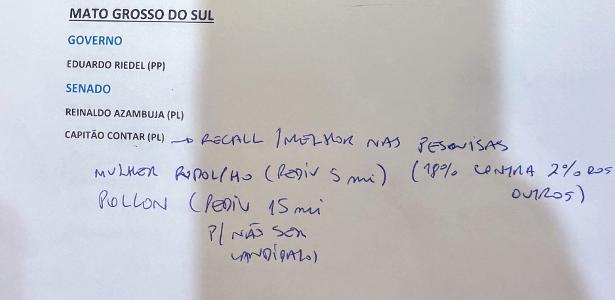 MATO GROSSO DO SUL
GOVERNO
EDUARDO RIEDEL (PP)
SENADO
REINALDO AZAMBUJA (PL)
CAPITÃO CONTAR (PL) → RECALL / MELHOR NAS PESQUISAS
MULHER RODOLPHO (PEDIU 5 mi) (18% CONTRA 2% DOS
OUTROS)
POLLON (PEDIU 15 mi
P/ NÃO SER
CANDIDATO)